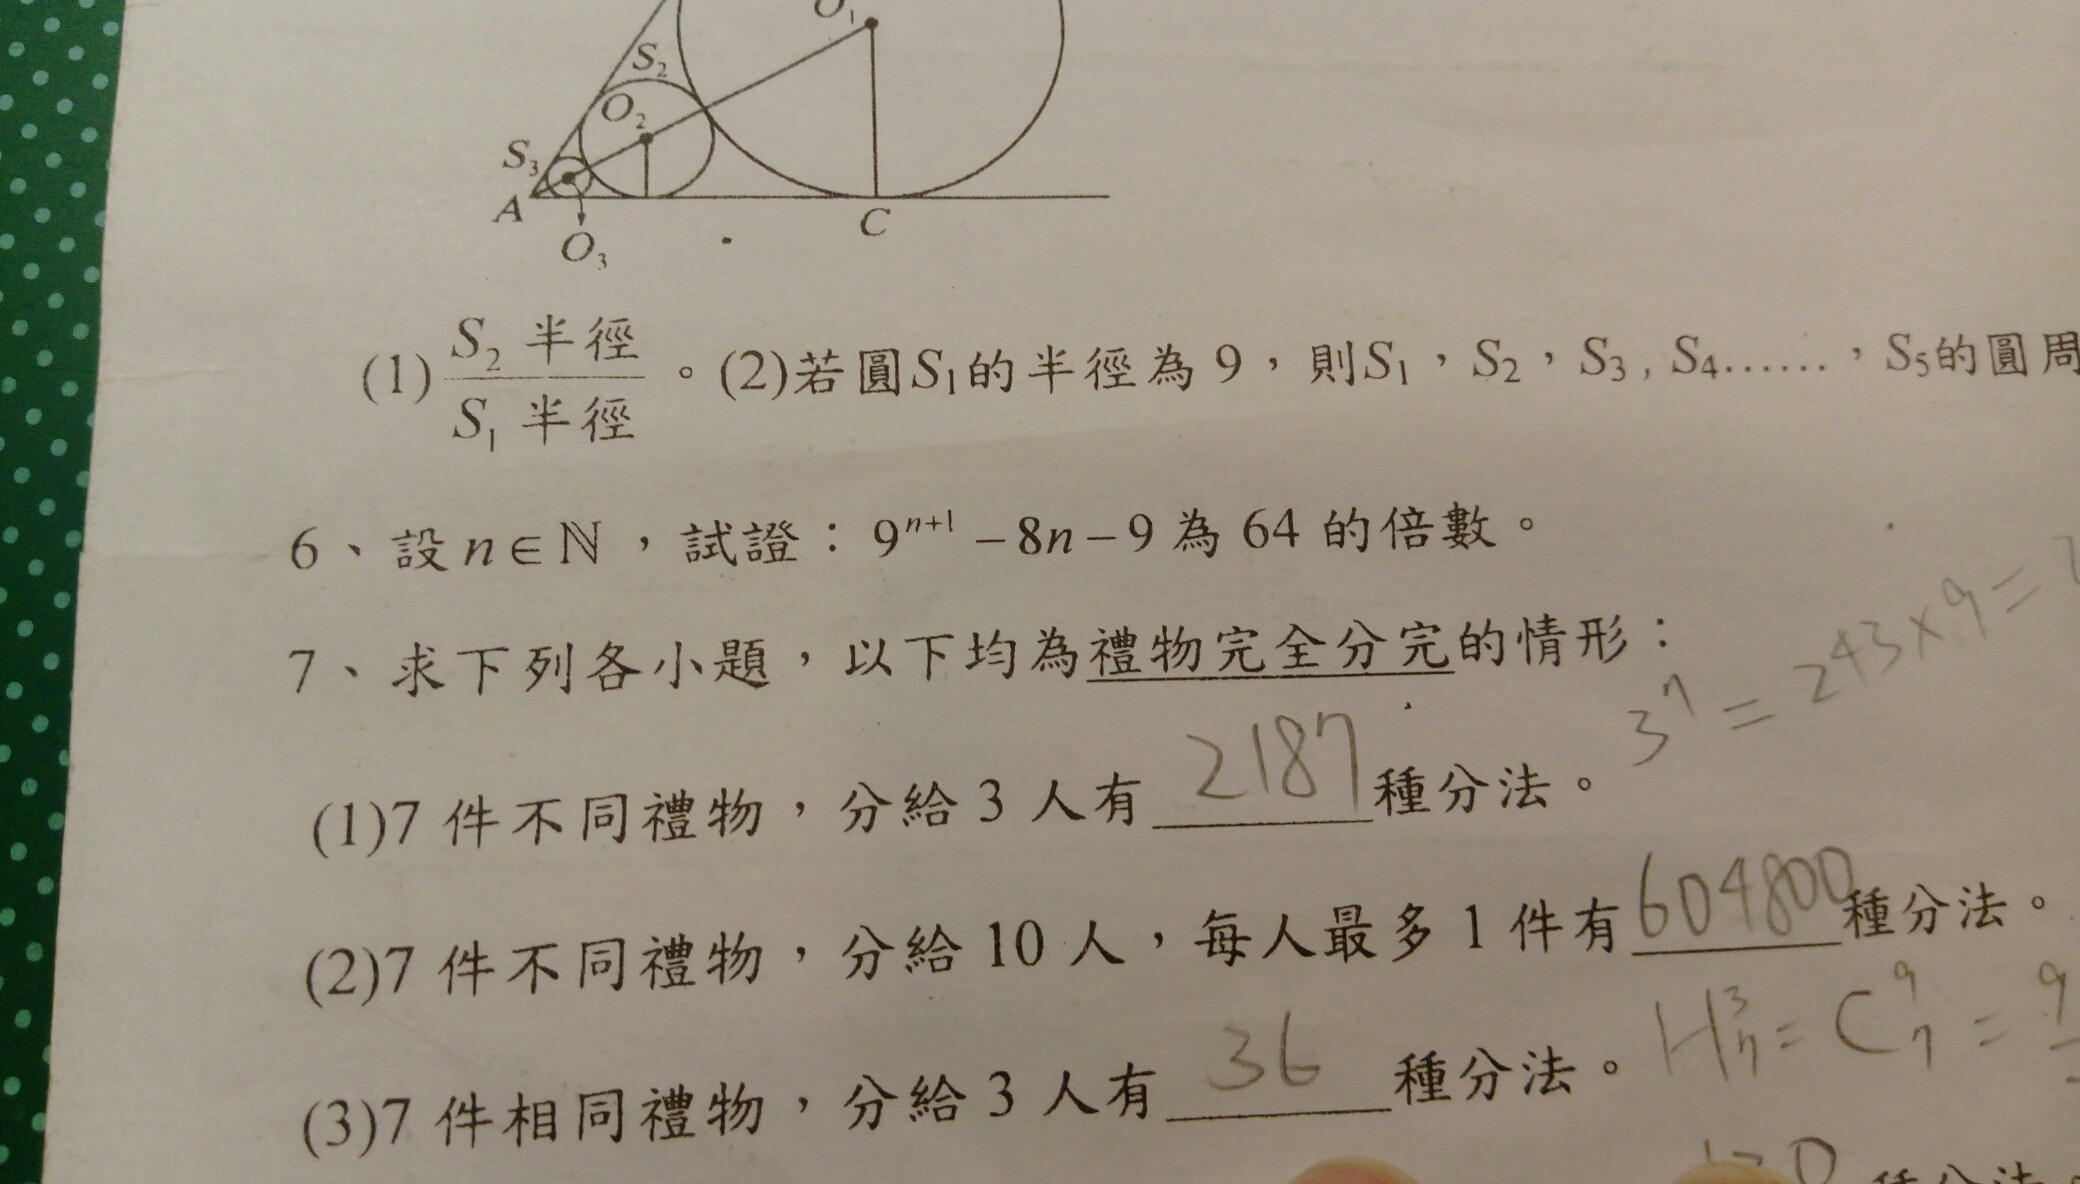 O₁
S₂
O₂
S₃
A
C
O₃
(1) S₂ 半徑 / S₁ 半徑 。(2)若圓S₁的半徑為 9，則S₁，S₂，S₃, S₄……，S₅的圓周
6、設 n∈ℕ，試證：9ⁿ⁺¹ －8n－9 為 64 的倍數。
7、求下列各小題，以下均為禮物完全分完的情形：
3⁷ = 243×9=
(1)7 件不同禮物，分給 3 人有 2187 種分法。
(2)7 件不同禮物，分給 10 人，每人最多 1 件有 604800 種分法。
(3)7 件相同禮物，分給 3 人有 36 種分法。
H³₇ = C⁹₇ = 9
種分法。